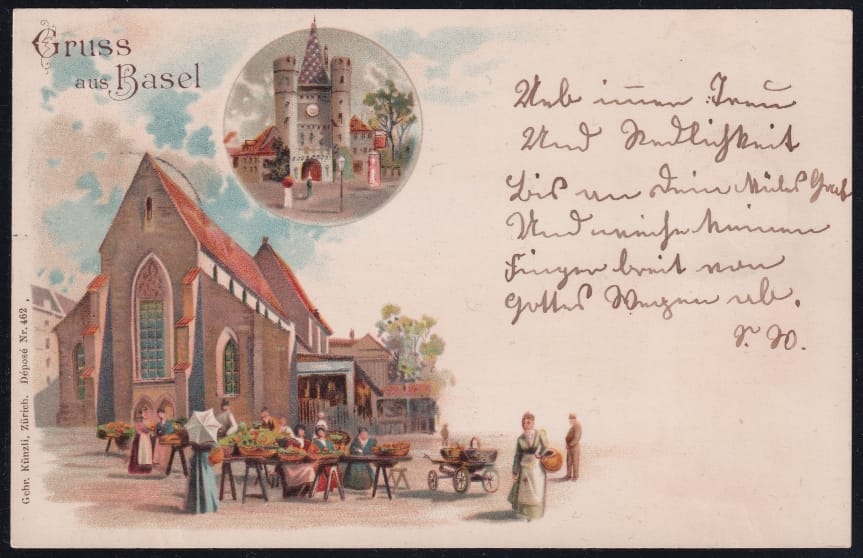 Gruss
aus Basel
Ueb immer Treu
Und Redlichkeit
bis an dein kühles Grab
Und weiche keinen
Finger breit von
Gottes Wegen ab.
Gebr. Künzli, Zürich. Déposé Nr. 462.